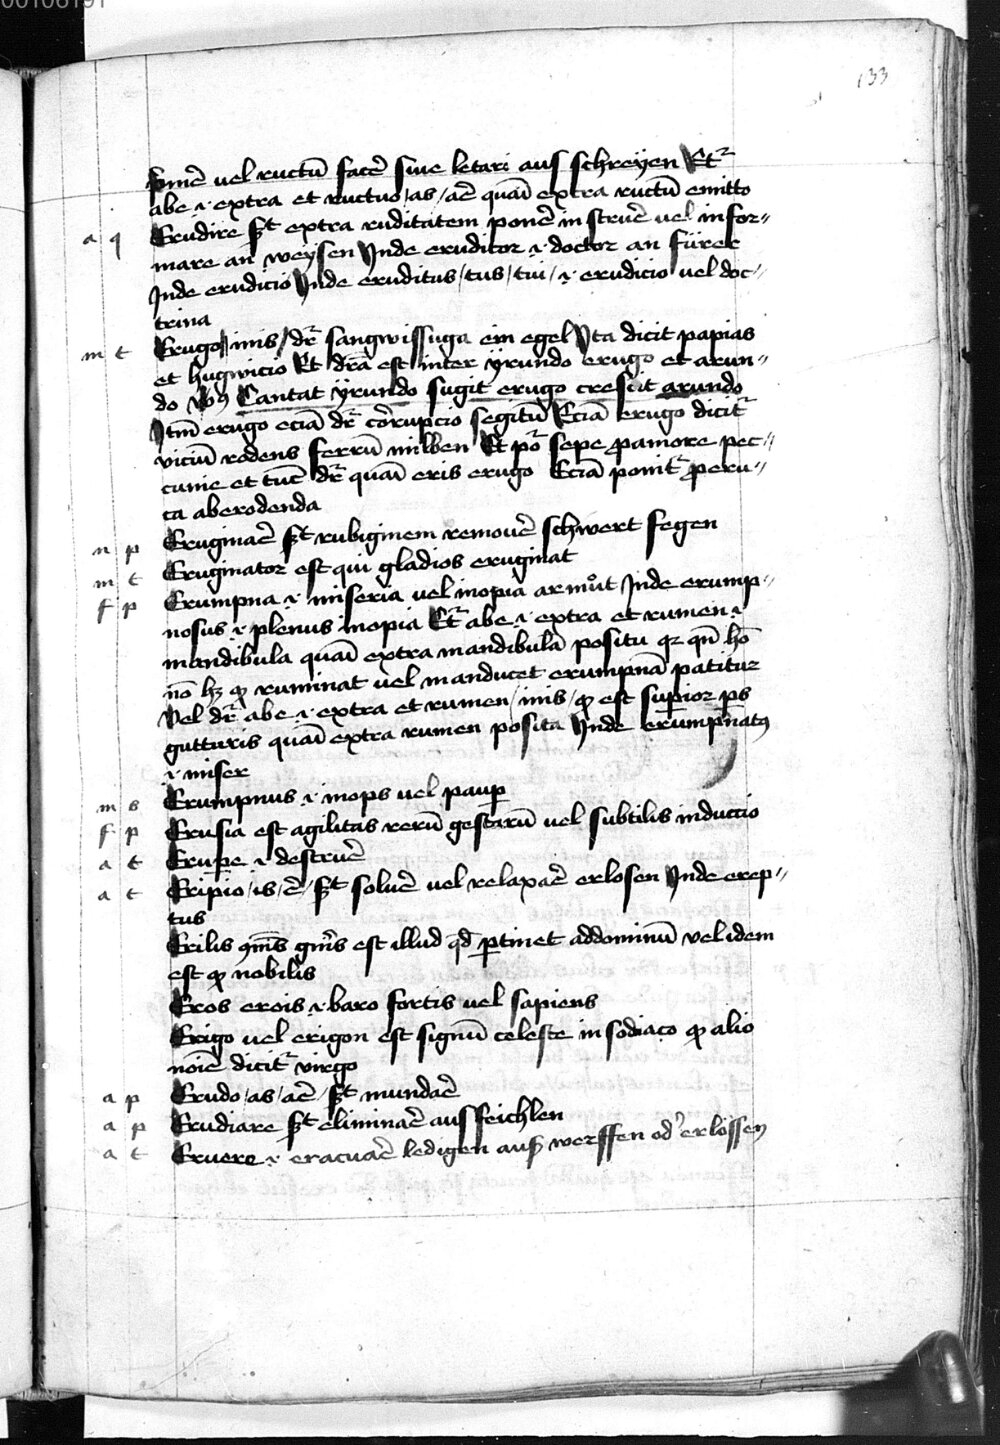 133
vomē vel ructū facē siue letari aus schreyen Et͛
ab e .i. extra et ructuo /as/ aē quāi extra ructū emitto
a q Erudire ſt extra ruditatem ponē instruē vel infor〃
mare an weysen Inde eruditor .i. doctor an fürer
Inde erudicio Inde eruditus /tus/ tui/ .i. erudicio vel doc〃
trina
m t Erugo /inis/ dr̄ sangwissuga ein egel Ita dicit papias
et hugwicio Et dr̄a est inter yrundo erugo et arun〃
do Cantat yrundo sugit erugo crescit arundo
Itm̄ erugo eciā dr̄ cōrupcio segitū Eciā erugo dicit͛
viciū rodens ferrū milben Et pō sepe p amore pec〃
cunie et tūc dr̄ quāi eris erugo Eciā ponit͛ p eru〃
ca aberodenda
n p Eruginaē ſt rubiginem remouē schwert fegen
m t Eruginator est qui gladios eruginat
f p Erumpna .i. miseria vel inopia armůt Inde erump〃
nosus .i. plenus inopia Et͛ ab e .i. extra et rumen .i.
mandibula quāi extra mandibulā positū qꝛ qn̄ hō
nō hꝫ ꝙ ruminat vel manducet erumpnā patitur
Vel dr̄ ab e .i. extra et rumen /inis/ ꝙ est sup̄ior ps
gutturis quāi extra rumen posita Inde erumpnatꝯ
.i. miser
m s Erumpnus .i. inops vel paup̄
f p Erusia est agilitas rerū gestarū vel subtilis induccio
a t Erupe .i. destruē
a t Eripio /is/ ē/ ſt soluē vel relaxaē erlosen Inde erep〃
tus
Erilis gm̄s est illud qd̄ ꝑtinet ad dominū vel idem
est ꝙ nobilis
Eros erois .i. baro fortis vel sapiens
Erigo vel erigon est signū celeste in sodiaco ꝙ alio
noīe dicit͛ virgo
a p Erudo /as/ aē/ ſt mundaē
a p Erudiare ſt eliminaē aus feichlen
a t Eruere .i. euacuaē ledigen auß werffen od͛ erlössen